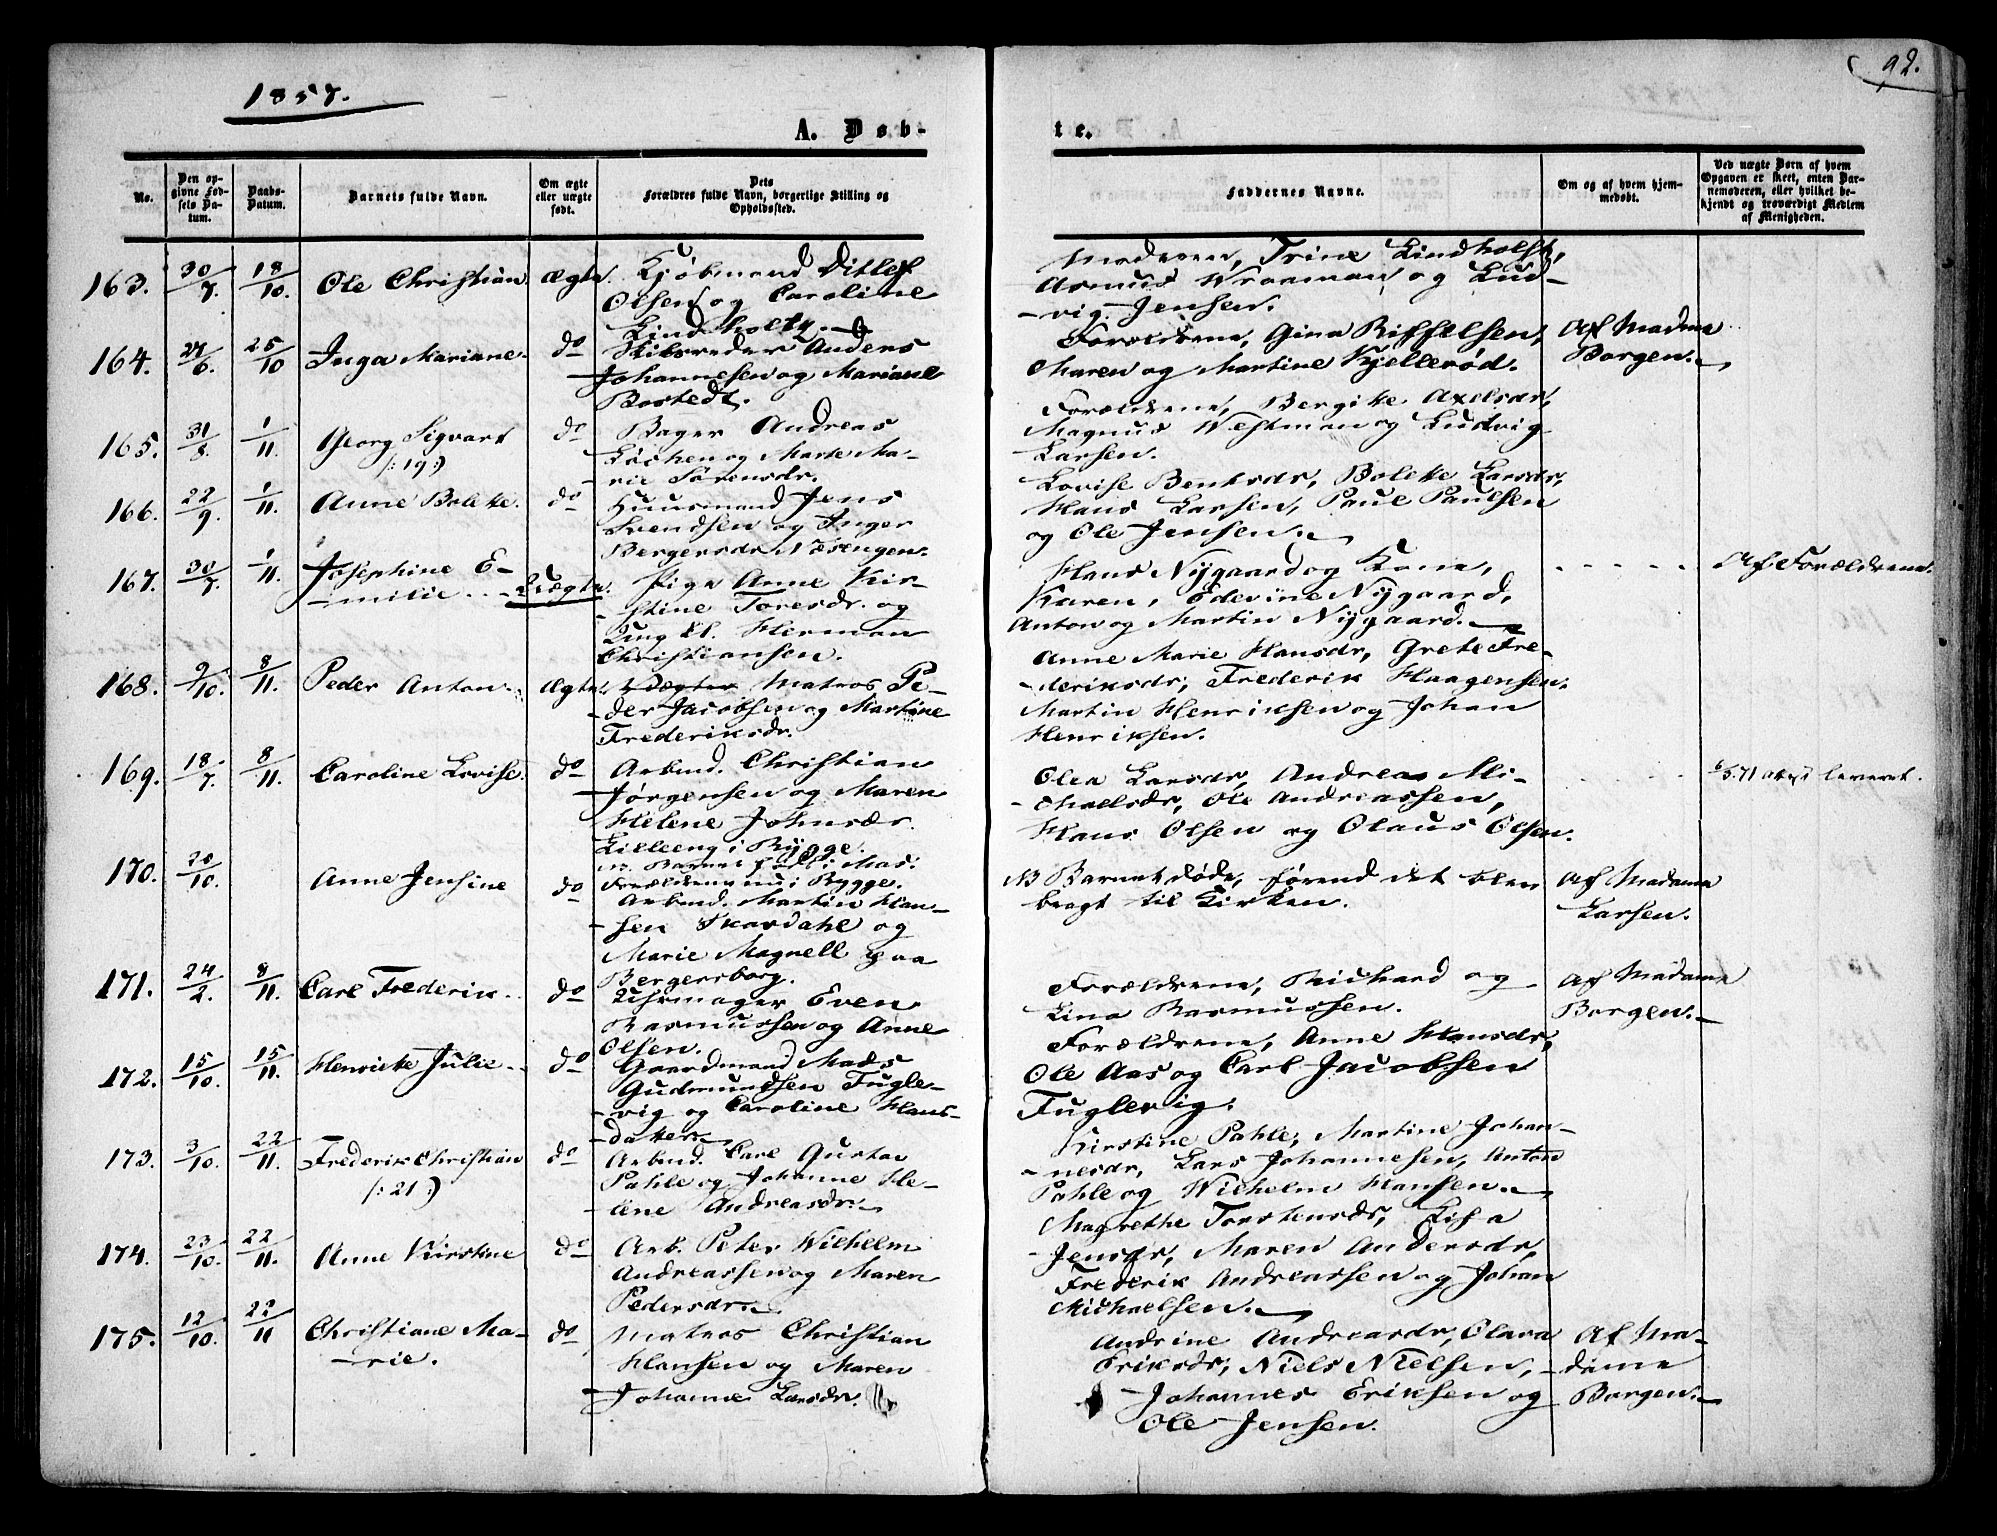 1857.
92.
A. Døb-
te.
No.
Den op-
givne Fød-
sels Da-
tum.
Daabs-
Datum.
Barnets fulde Navn.
Om ægte
eller uægte
født.
Dets
Forældres fulde Navn, borgerlige Stilling og
Opholdssted.
Faddernes Navne.
Om og af hvem hjem-
medøbt.
Ved uægte Børn af hvem
Opgaven er skeet, enten Bar-
nemoderen, eller hvilket be-
kjendt og troværdigt Medlem
af Menigheden.
163. 30/7. 18/10. Ole Christian. ægte. Kjøbmand Ditlef
Olsen og Caroline
Lindholtz.
Moderen, Trine Lindholst,
Asmus Wraaman og Lud-
vig Jensen.
164. 27/6. 25/10 Inga Mariane do Skibsreder Anders
Johannesen og Mariane
Bostedt.
Forældrene, Gina Riffelsen,
Maren og Martine Kjellerød.
Af Madame
Borgen.
165. 31/8. 1/11. Georg Sigvart
(:19:)
do Bager Andreas
Løchen og Marte Ma-
rie Sørensdr.
Forældrene, Bergite Axelsdr,
Magnus Westman og Ludvig
Larsen.
166. 22/9. 1/11. Anne Bolette. do Huusmand Jens
Svendsen og Inger
Bergersdr Næsengen.
Lovise Bentsdr, Bolette Larsdr,
Hans Larsen, Paul Paulsen
og Ole Jensen.
167. 30/7. 1/11. Josephine E-
milie. Uægte. Pige Anne Kir-
stine Toresdr. og
Ung kl. Herman
Christiansen.
Hans Nygaard og Kone,
Karen, Edevine Nygaard,
Anton og Martin Nygaard.
Af Forældrene.
168. 9/10. 8/11. Peder Anton. ægte. Matros Pe-
der Jacobsen og Martine
Frederiksdr.
Anne Marie Hansdr, Grete Fre-
deriksdr, Frederik Haagensen,
Martin Henriksen og Johan
Henriksen.
169. 18/7. 8/11. Caroline Lovise. do Arbmd. Christian
Jørgensen og Maren
Helene Johnsdr.
Lilleeng i Rygge.
NB. Barnet født i Mos;
Forældrene nu i Rygge.
Olea Larsdr, Andrea Mi-
chaelsdr, Ole Andreassen,
Hans Olsen og Olaus Olsen.
6/5.71 att leveret.
170. 20/10. Anne Jensine do Arbmd. Martin Han-
sen Skardahl og
Marie Magnell paa
Bergersborg.
NB Barnet døde, førend det blev
bragt til Kirken.
Af Madame
Larsen.
171. 24/2. 8/11. Carl Frederik. do Uhrmager Even
Rasmussen og Anne
Olsen.
Forældrene, Richard og
Lina Rasmussen.
Af Madame
Borgen.
172. 15/10. 15/11. Henriette Julie. do Gaardmand Mads
Gudmundsen Fugle-
vig og Caroline Hans-
datter.
Forældrene, Anne Hansdr,
Ole Aas og Carl Jacobsen
Fuglevig.
173. 3/10. 22/11. Frederik Christian
(:21:)
do Arbmd. Carl Gustav
Pahle og Johanne He-
lene Andreasdr.
Kirstine Pahle, Martine Johan-
nesdr, Lars Johannesen, Anton
Pahle og Wilhelm Hansen.
174. 23/10. 22/11. Anne Kirstine do Arb. Peter Wilhelm
Andreassen og Maren
Pedersdr.
Magrethe Torstensdr, Lisa
Jensdr, Maren Andersdr,
Frederik Andreassen og Johan
Michaelsen.
175. 12/10. 22/11 Christiane Ma-
rie.
do Matros Christian
Hansen og Maren
Johanne Larsdr.
Andrine Andreasdr, Olava
Eriksdr, Niels Nielsen,
Johannes Eriksen og
Ole Jensen.
Af Ma-
dame
Borgen.